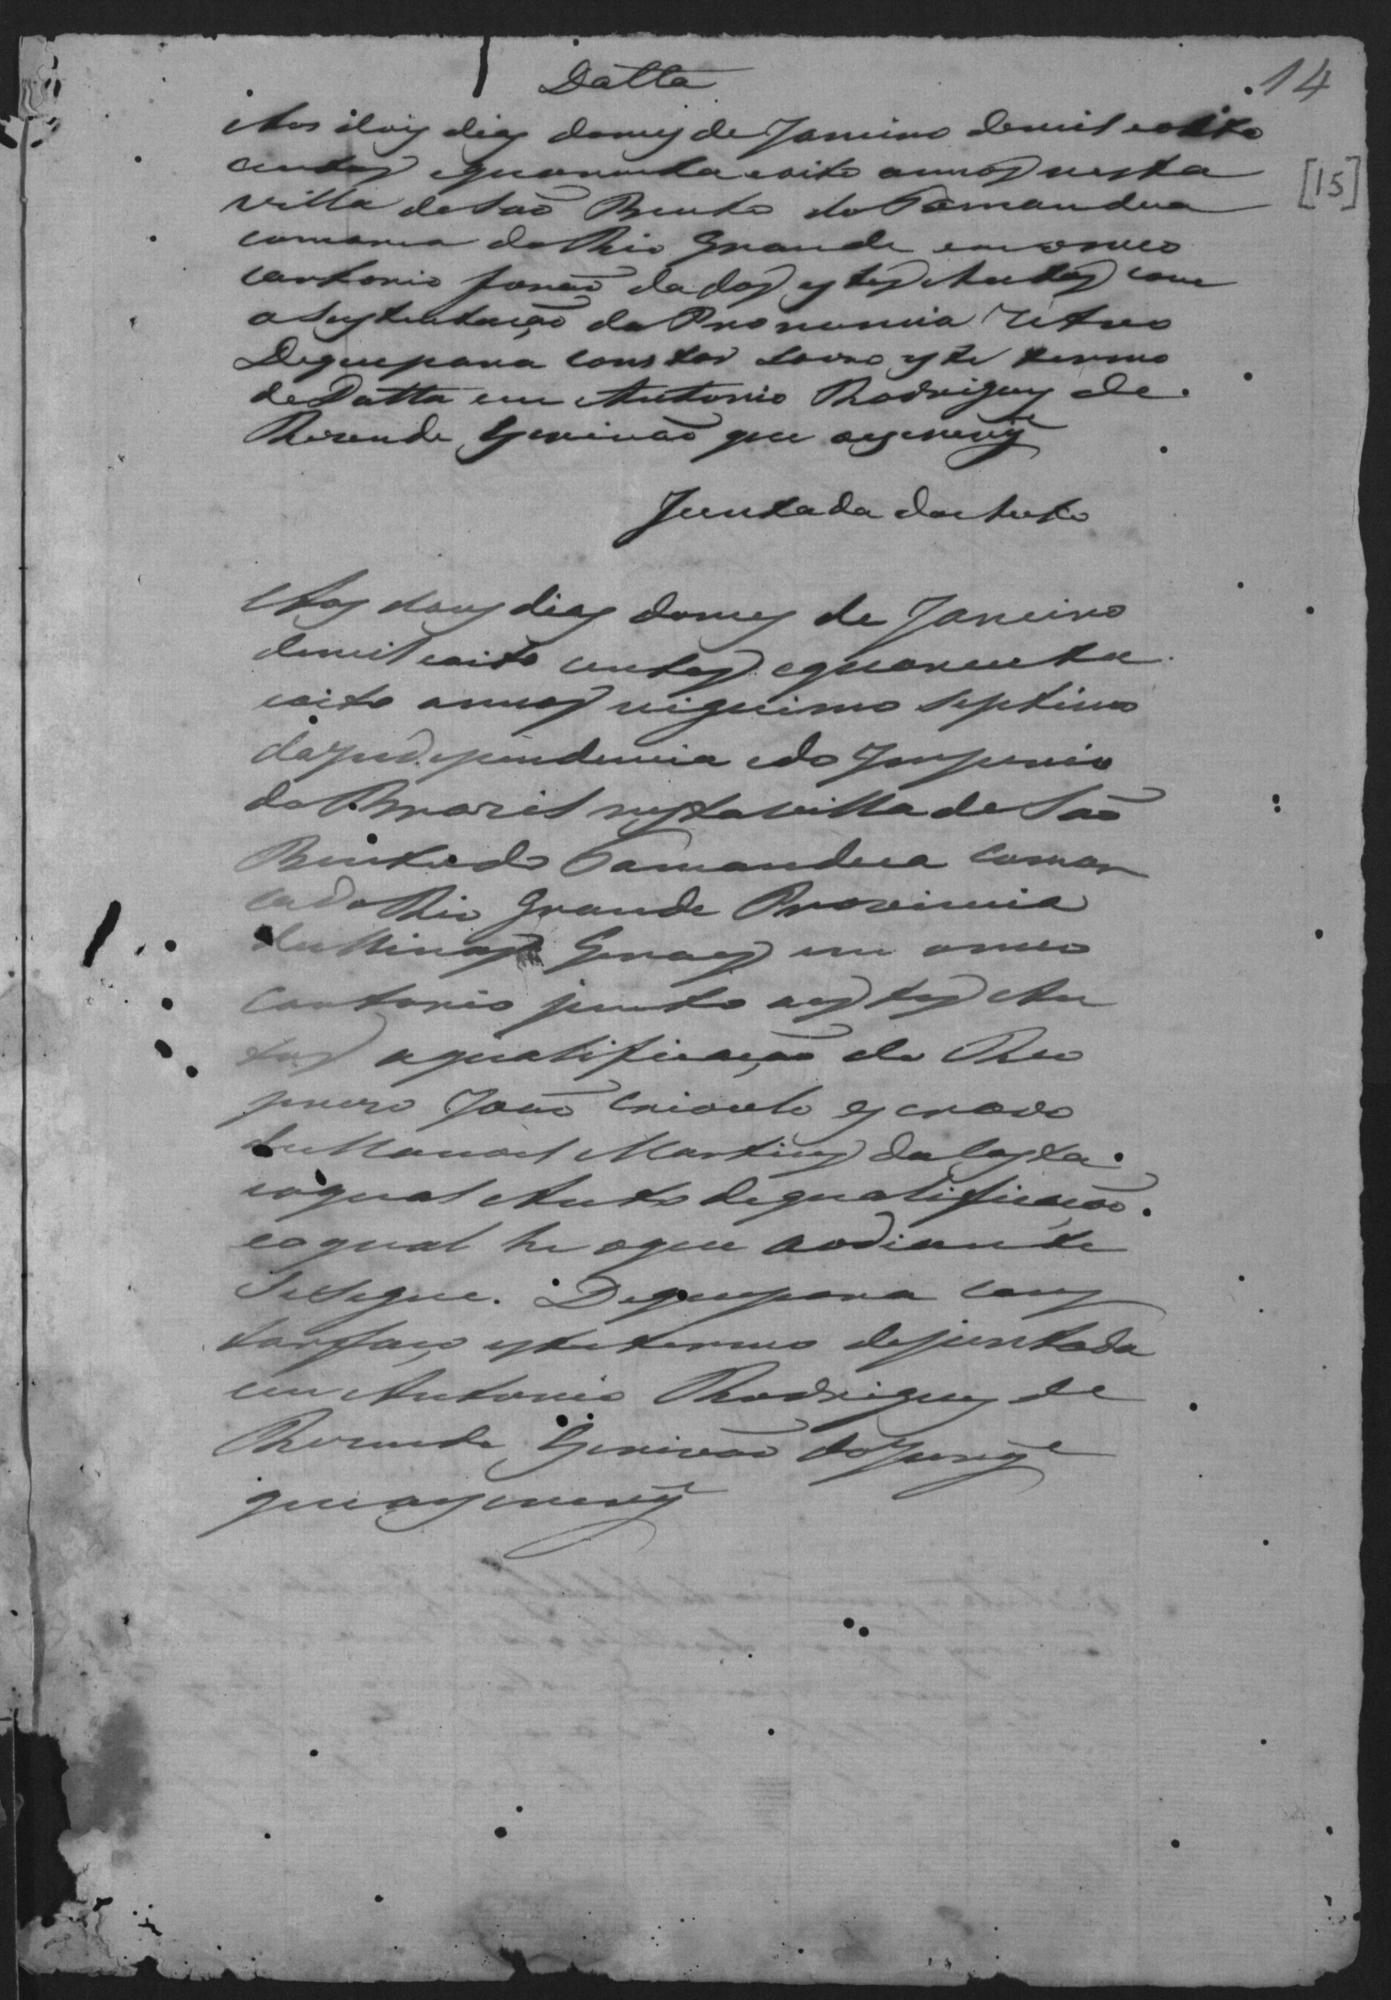 14
[15]
Datta
Aos dois dias domes de Janeiro demil eoito
centos equarenta eoito annos nesta
villa deSaõ Bento do Tamandua
comarca do Rio Grande em omeo
cartorio foraõ dados estes Autos com
a Sustentaçaõ da Pronuncia retro
Dequepara constar Lavro este termo
de Datta eu Antonio Rodrigues de
Resende Escrivaõ que oescrevy
Juntada do Auto
Aos dous dias domes de Janeiro
demil eoito centos equarenta
eoito annos vigesimo septimo
da Independencia edo Imperio
do Brazil nestavilla de Saõ
Bento do Tamandua comar
ca do Rio Grande Provincia
de Minas Geraes em omeo
cartorio junto aestes Au
tos aqualificaçaõ do Reo
prezo Joaõ crioulo escravo
de Manoel Martins da Costa
oqual Auto dequalificaçaõ
eoqual he oque aodiante
Sesegue. Dequepara cons
tarfaço estetermo dejuntada
eu Antonio Rodrigues de
Resende Escrivaõ do Jury
queoescrevy